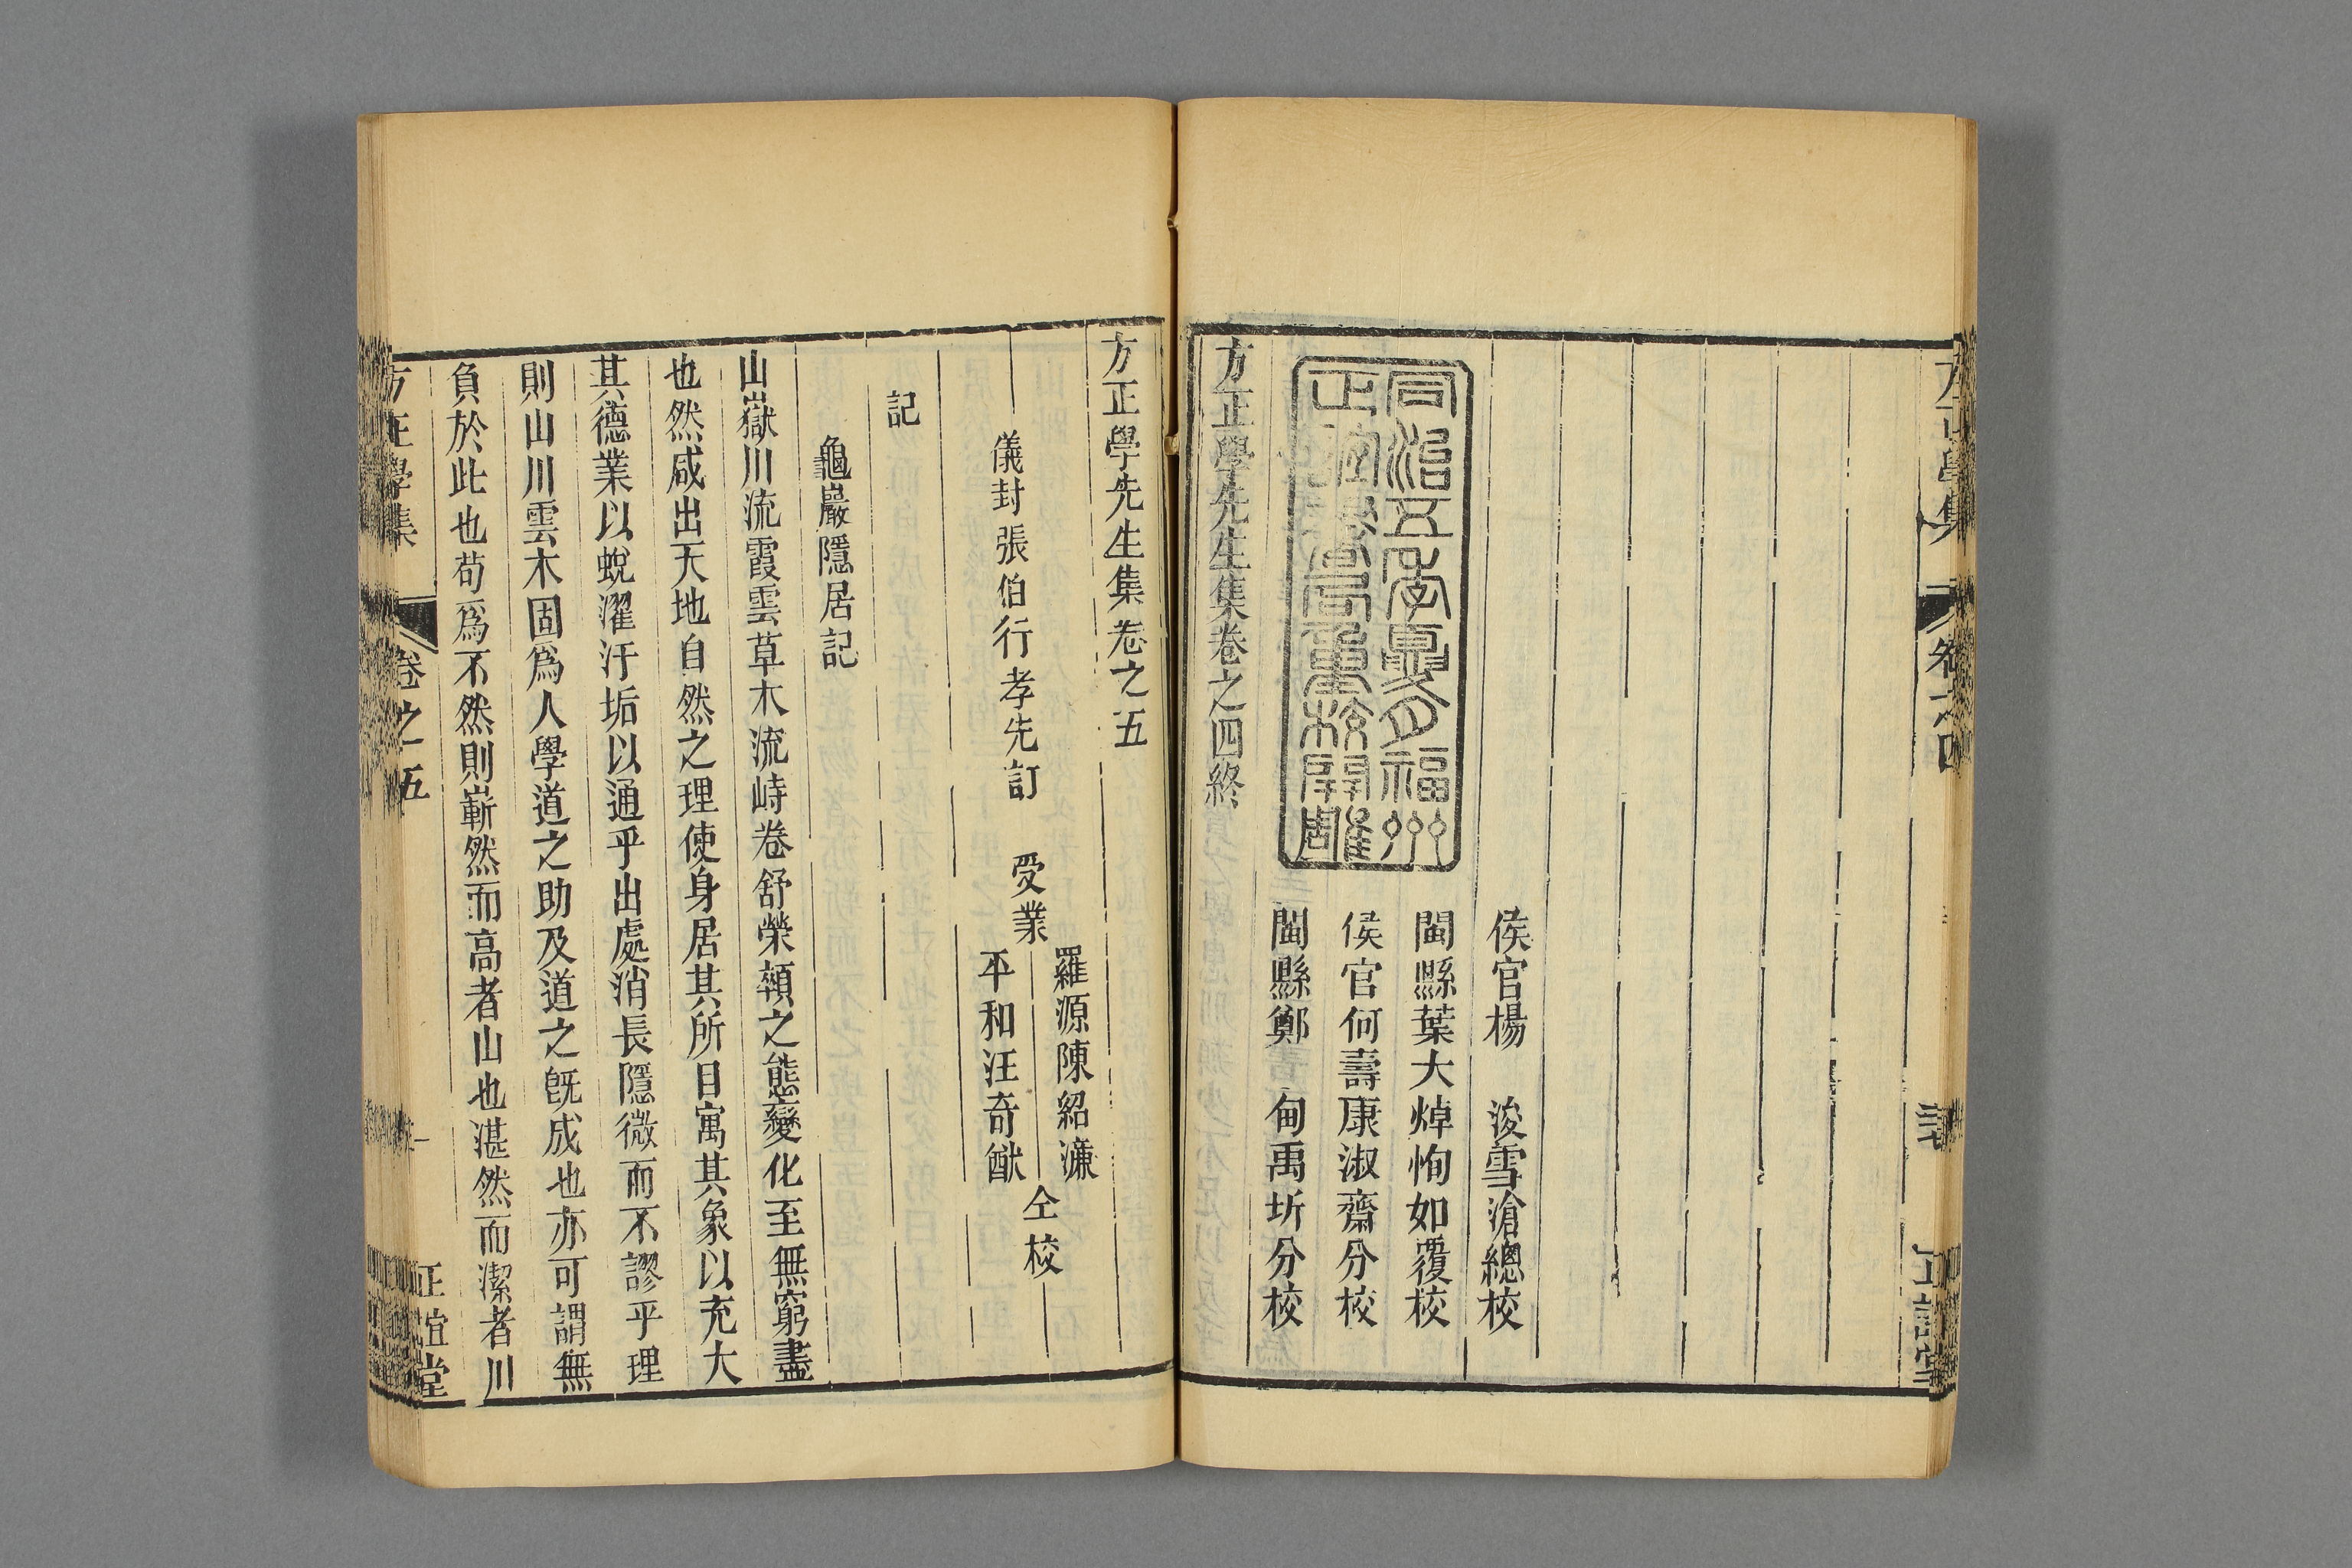 侯官楊　浚雪滄總校
閩縣葉大焯恂如覆校
侯官何壽康淑齋分校
閩縣鄭　甸禹圻分校
同治五年夏月福州
正誼書局重校開雕
方正學先生集卷之四終
方正學先生集卷之五
儀封張伯行孝先訂　受業
羅源陳紹濂
平和汪奇猷
仝校
記
龜巖隱居記
山嶽川流霞雲草木流峙卷舒榮顇之態變化至無窮盡
也然咸出天地自然之理使身居其所目寓其象以充大
其德業以蛻濯汙垢以通乎出處消長隱微而不謬乎理
則山川雲木固爲人學道之助及道之旣成也亦可謂無
負於此也苟爲不然則嶄然而高者山也湛然而潔者川
方正學集　卷之五　一　正誼堂